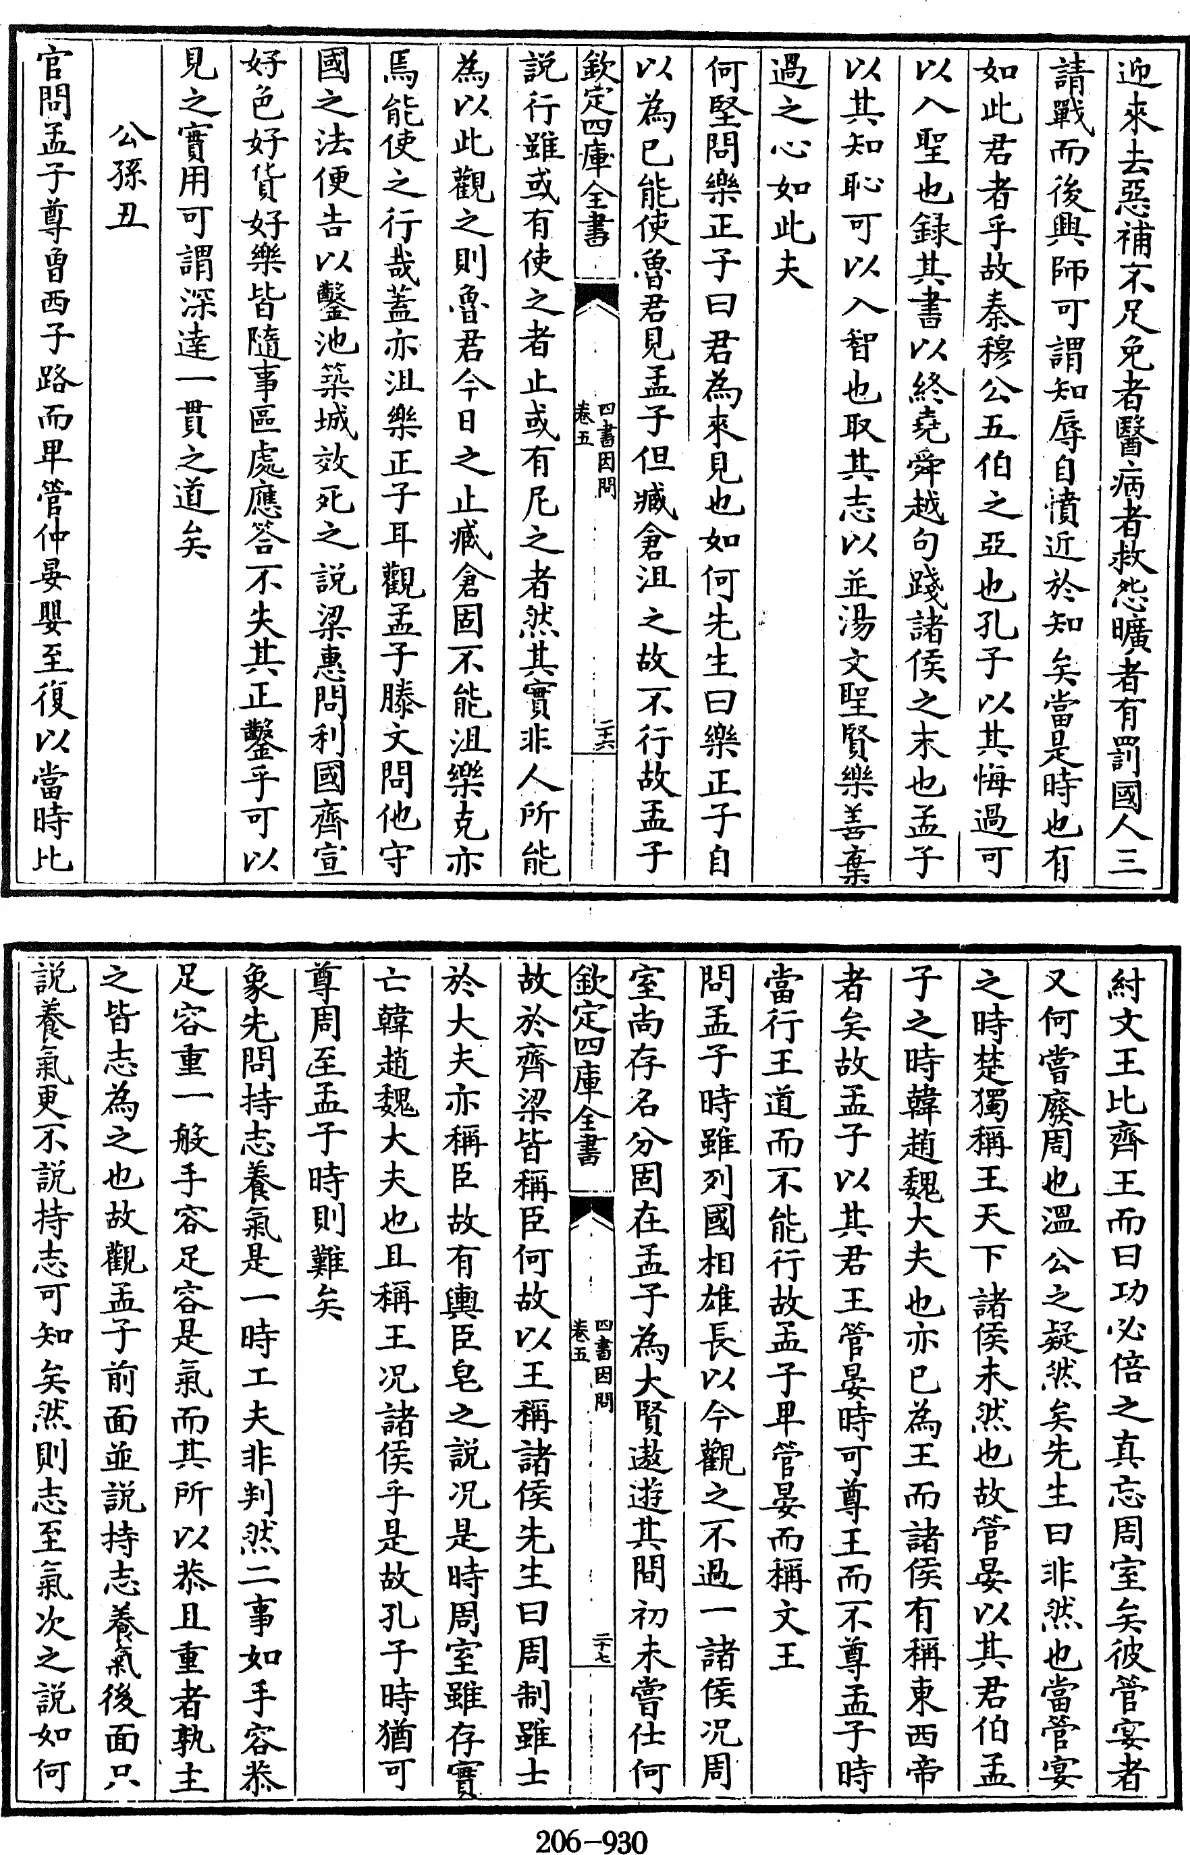 迎來去惡補不足免者醫病者救怨曠者有罰國人三
請戰而後興師可謂知辱自憤近於知矣當是時也有
如此君者乎故秦穆公五伯之亞也孔子以其悔過可
以入聖也錄其書以終堯舜越句踐諸侯之末也孟子
以其知恥可以入智也取其志以並湯文聖賢樂善棄
過之心如此夫
何堅問樂正子曰君為來見也如何先生曰樂正子自
以為已能使魯君見孟子但臧倉沮之故不行故孟子
欽定四庫全書
四書因問
卷五
二十六
説行雖或有使之者止或有尼之者然其實非人所能
為以此觀之則魯君今日之止臧倉固不能沮樂克亦
焉能使之行哉蓋亦沮樂正子耳觀孟子滕文問他守
國之法便告以鑿池築城效死之説梁惠問利國齊宣
好色好貨好樂皆隨事區處應答不失其正鑿乎可以
見之實用可謂深達一貫之道矣
公孫丑
官問孟子尊曾西子路而卑管仲晏嬰至復以當時比
紂文王比齊王而曰功必倍之真忘周室矣彼管宴者
又何嘗廢周也溫公之疑然矣先生曰非然也當管宴
之時楚獨稱王天下諸侯未然也故管晏以其君伯孟
子之時韓趙魏大夫也亦已為王而諸侯有稱東西帝
者矣故孟子以其君王管晏時可尊王而不尊孟子時
當行王道而不能行故孟子卑管晏而稱文王
問孟子時雖列國相雄長以今觀之不過一諸侯況周
室尚存名分固在孟子為大賢遨遊其間初未嘗仕何
欽定四庫全書
四書因問
卷五
二十七
故於齊梁皆稱臣何故以王稱諸侯先生曰周制雖士
於大夫亦稱臣故有輿臣皂之説况是時周室雖存實
亡韓趙魏大夫也且稱王况諸侯乎是故孔子時猶可
尊周至孟子時則難矣
象先問持志養氣是一時工夫非判然二事如手容恭
足容重一般手容足容是氣而其所以恭且重者孰主
之皆志為之也故觀孟子前面並説持志養氣後面只
説養氣更不説持志可知矣然則志至氣次之説如何
206-930